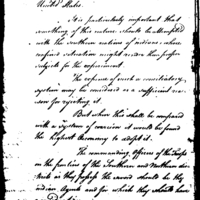 United States.
It is particularly important that
something of this nature should be attempted
with the southern nations of indians, whose
confined situation might render them proper
subjects for the experiment.
The expense of such a conciliatory
system may be considered as a sufficient rea-
son for rejecting it.
But when this shall be compared
with a system of coercion it would be found
the highest economy to adopt it.
The commanding Officers of the Troops
on the frontiers of the Southern and Northern dis-
tricts as they pass the second should be the
indian Agents and for which they should have